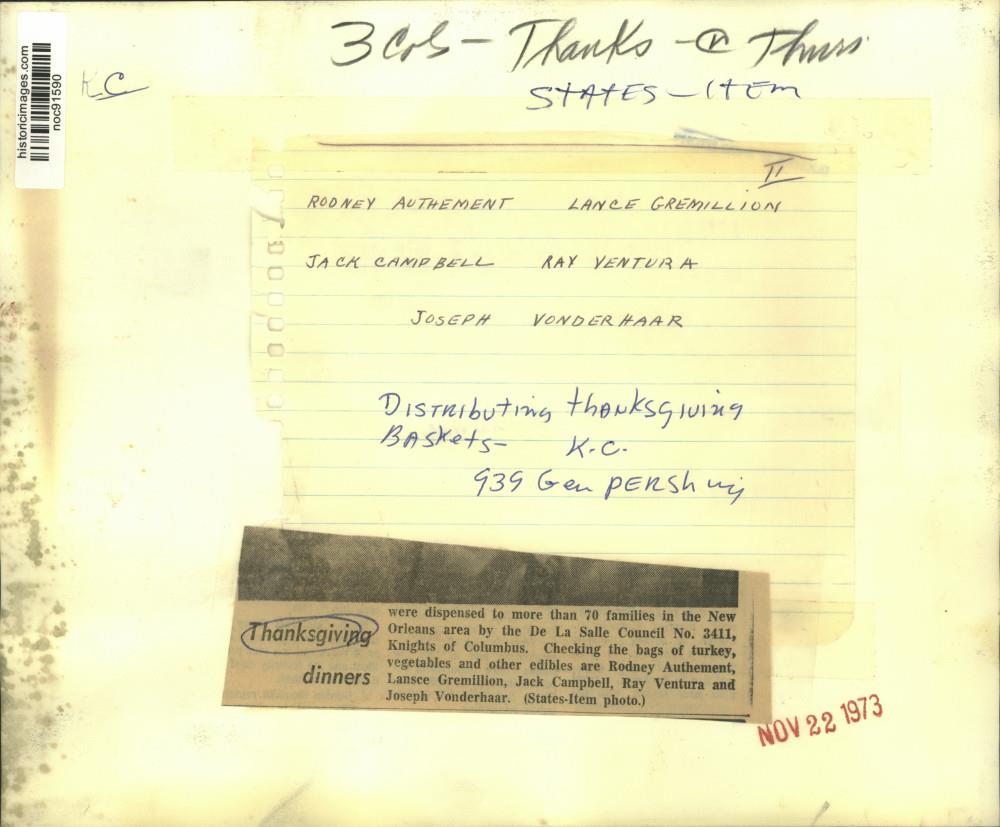 3 Cols - Thanks - Thurs
STATES-ITEM
KC
historicimages.com
noc91590
II
RODNEY AUTHEMENT LANCE GREMILLION
JACK CAMPBELL RAY VENTURA
JOSEPH VONDERHAAR
Distributing thanksgiving
Baskets-
K.C.
939 Gen PERShing
Thanksgiving
dinners
were dispensed to more than 70 families in the New
Orleans area by the De La Salle Council No. 3411,
Knights of Columbus. Checking the bags of turkey,
vegetables and other edibles are Rodney Authement,
Lansce Gremillion, Jack Campbell, Ray Ventura and
Joseph Vonderhaar. (States-Item photo.)
NOV 22 1973